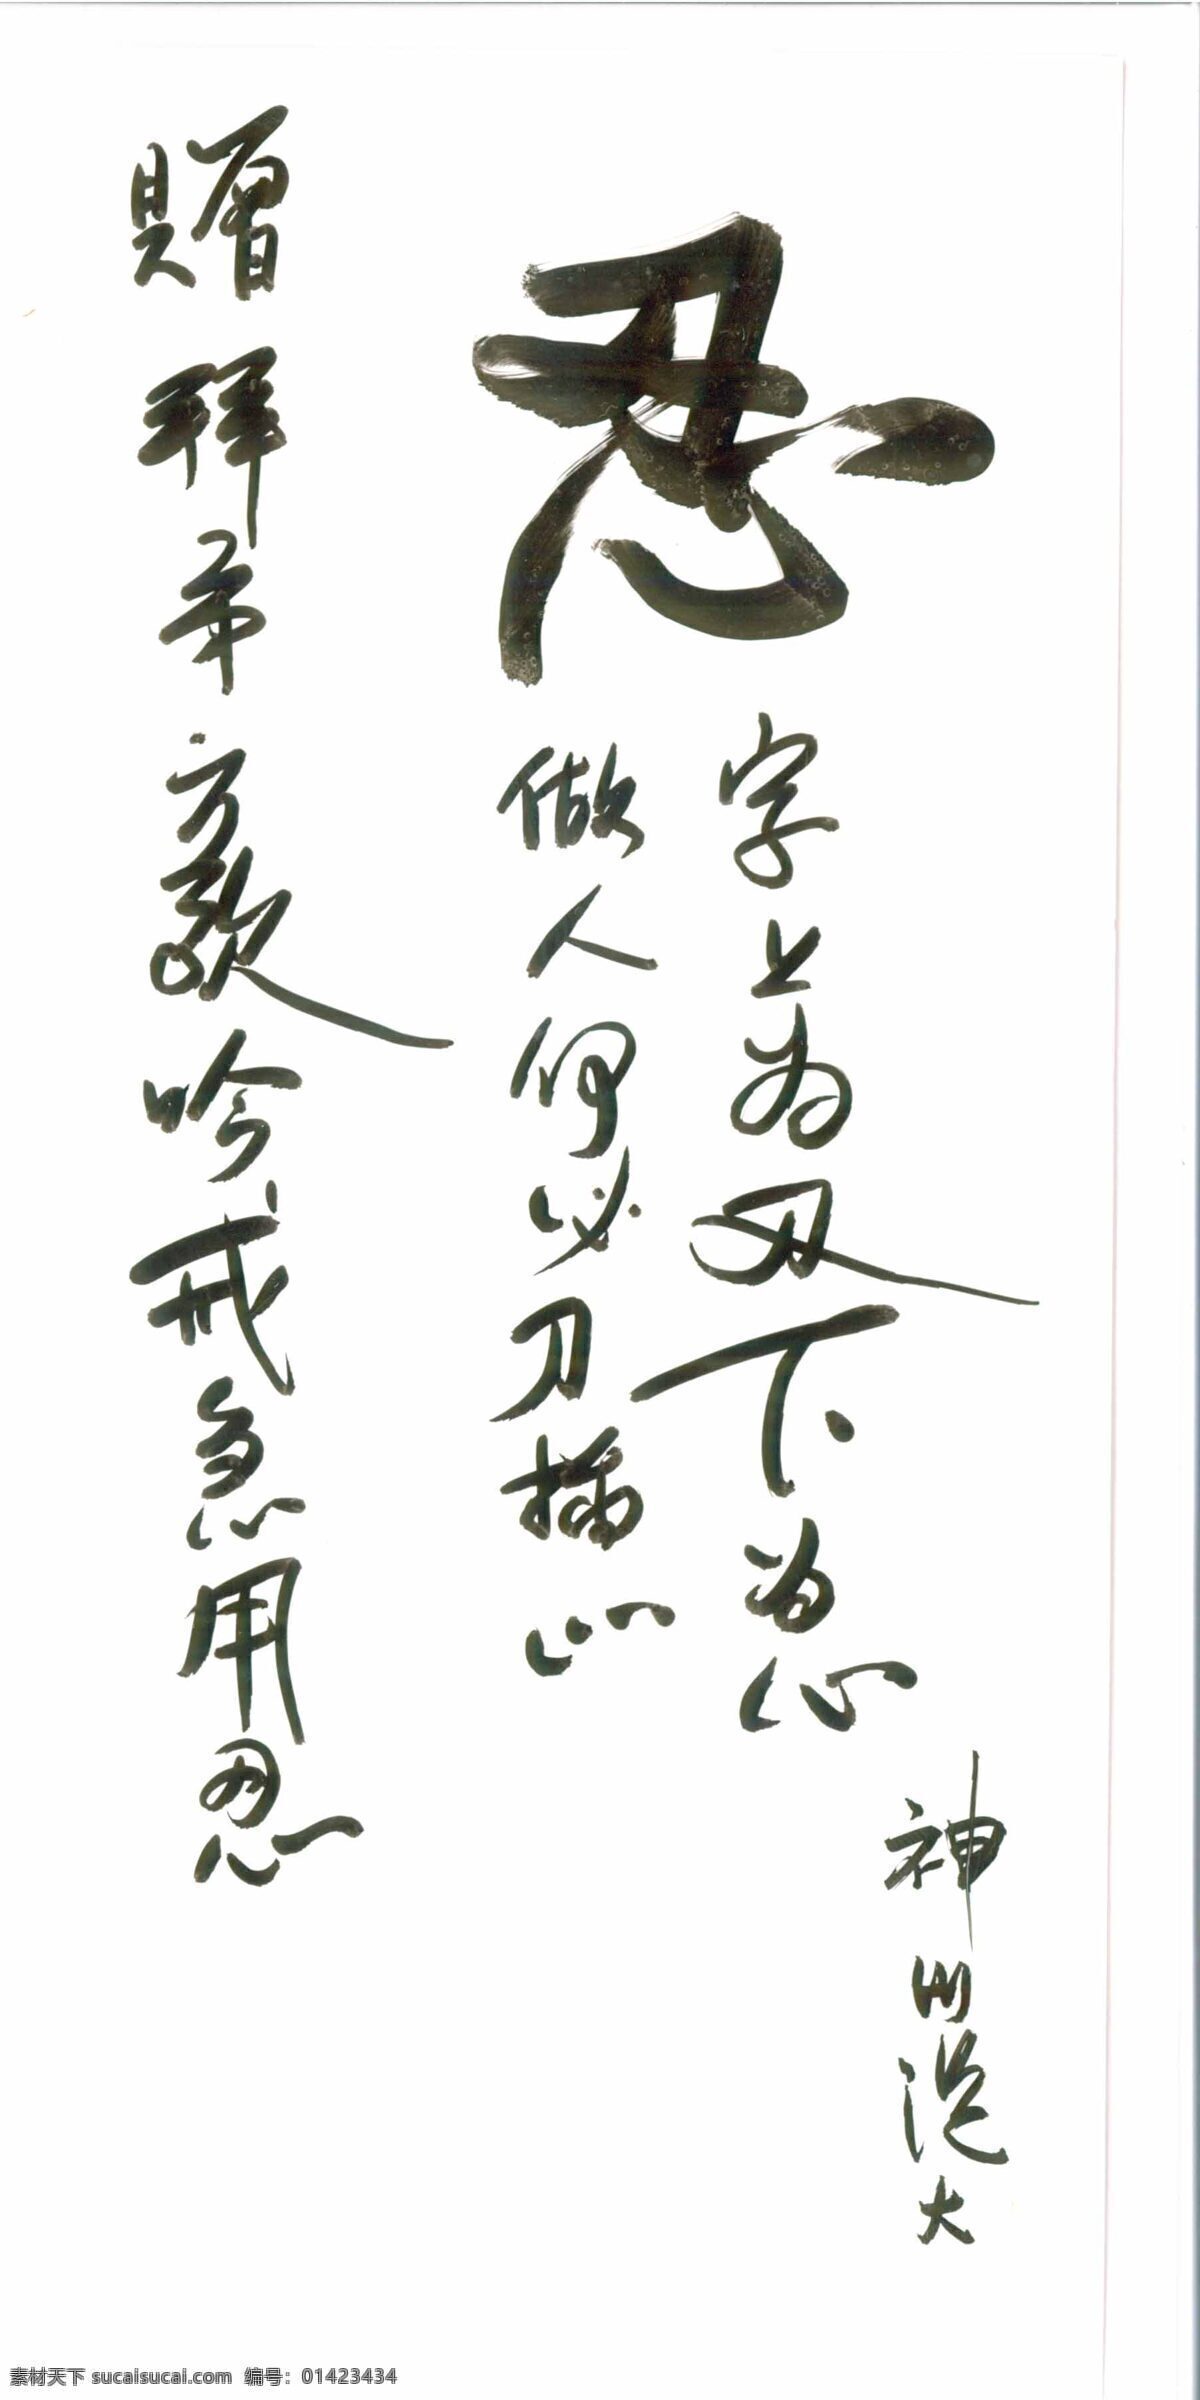 神州 大
忍
字上为刃下为心
做人何必刀插心
贈拜弟方 吟戒急用忍
素材天下 sucaisucai.com 编号：01423434